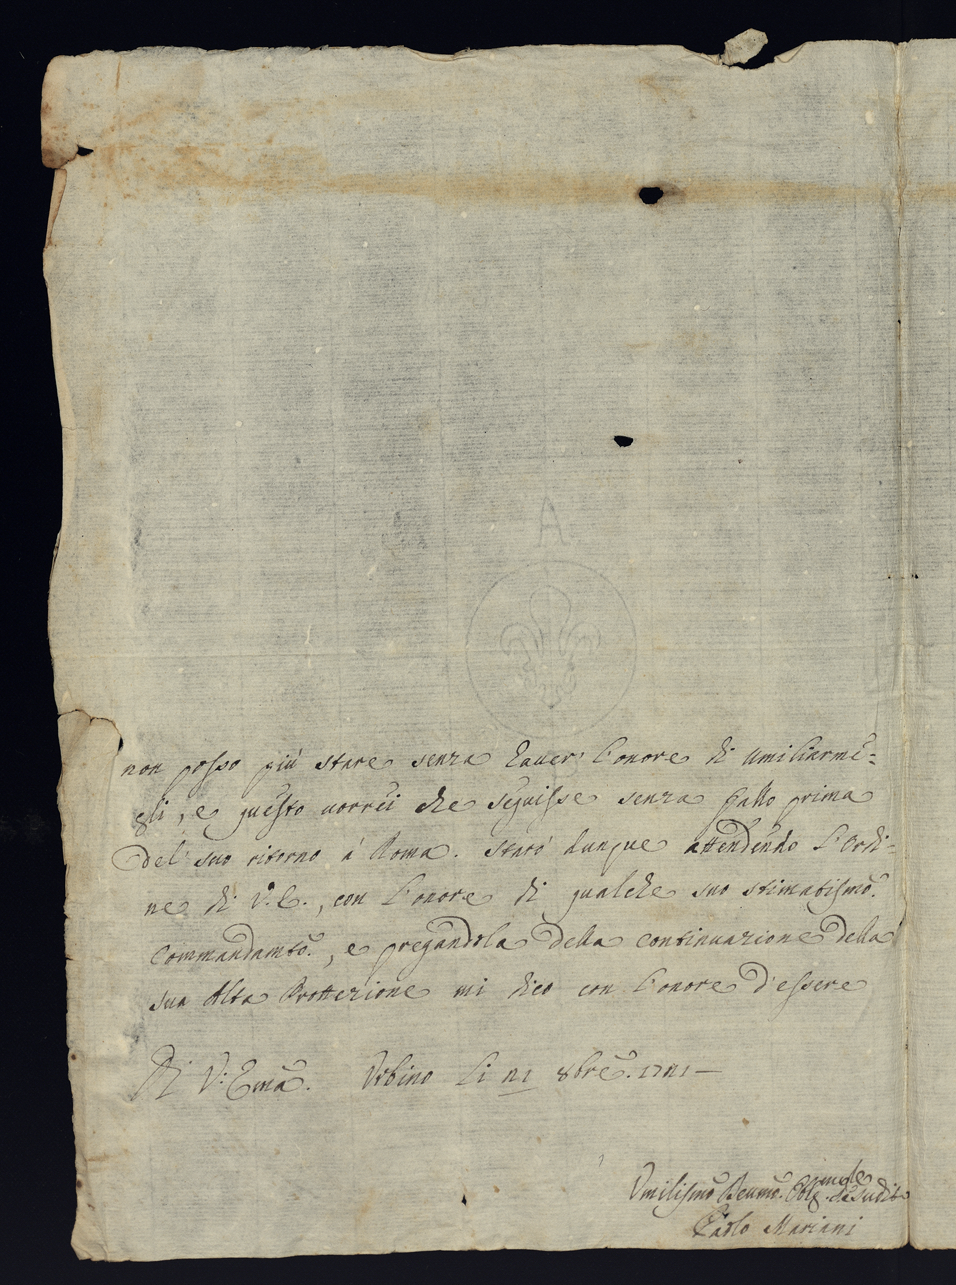 A
non posso più stare senza haver l'onore di umiliarme-
gli, e questo vorrei che seguisse senza fallo prima
del suo ritorno à Roma. starò dunque attendendo l'ordi-
ne di V. E., con l'onore di qualche suo stimatismo.
Commandamto., e pregandola della continuazione della
sua Alta Protterione mi dico con l'onore d'essere
Di V: Ema. Urbino li 8bre.
Umilismo Devmo. Oblg.
Paolo Mariani